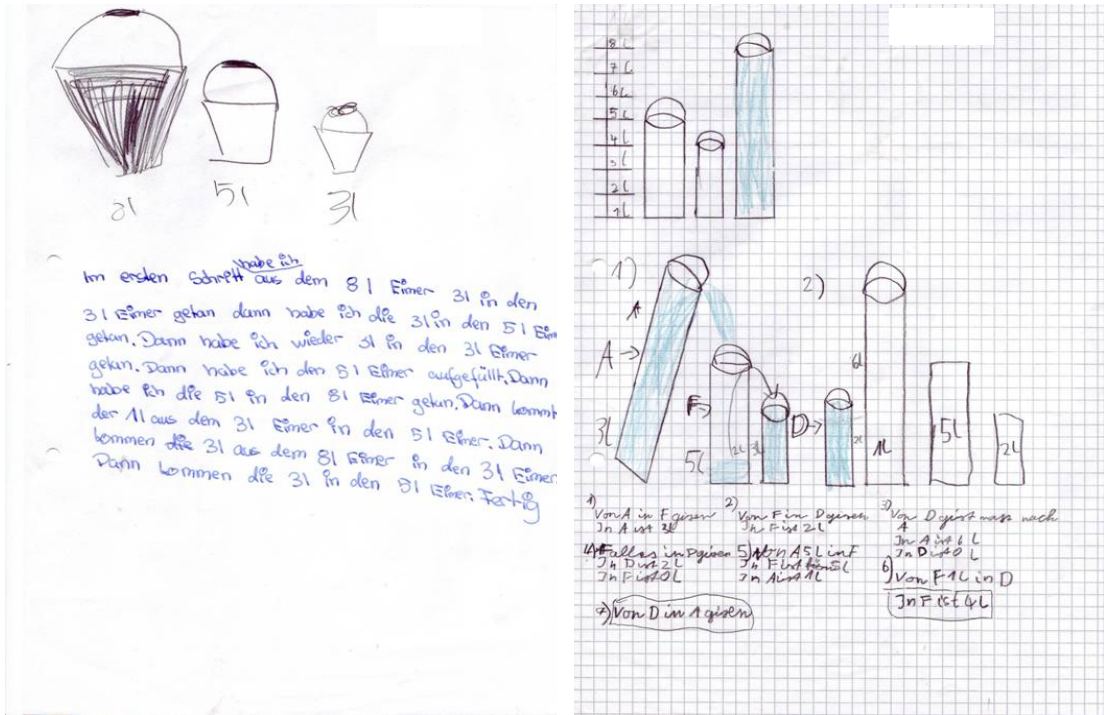 8l
5l
3l
habe ich
Im ersten Schritt aus dem 8l Eimer 3l in den
3l Eimer getan dann habe ich die 3l in den 5l Eim
getan. Dann habe ich wieder 3l in den 3l Eimer
getan. Dann habe ich den 5l Eimer aufgefüllt. Dann
habe ich die 5l in den 8l Eimer getan. Dann kommt
der 1l aus dem 3l Eimer in den 5l Eimer. Dann
kommen die 3l aus dem 8l Eimer in den 3l Eimer
Dann kommen die 3l in den 5l Eimer. Fertig
8L
7L
6L
5L
4L
3L
2L
1L
1)
2)
A
A
F
D
3L
5L
2L
3L
1L
5L
2L
1)
Von A in F gisen
In A ist 3L
2)
Von F in D gisen
In F ist 2L
3)
Von D gist man nach
A
In A ist 6L
In D ist 0L
4) F alles in D gisen
In D ist 2L
In F ist 0L
5) Von A 5L in F
In F ist 5L
In A ist 1L
6)
Von F 1L in D
In F ist 4L
7) Von D in A gisen